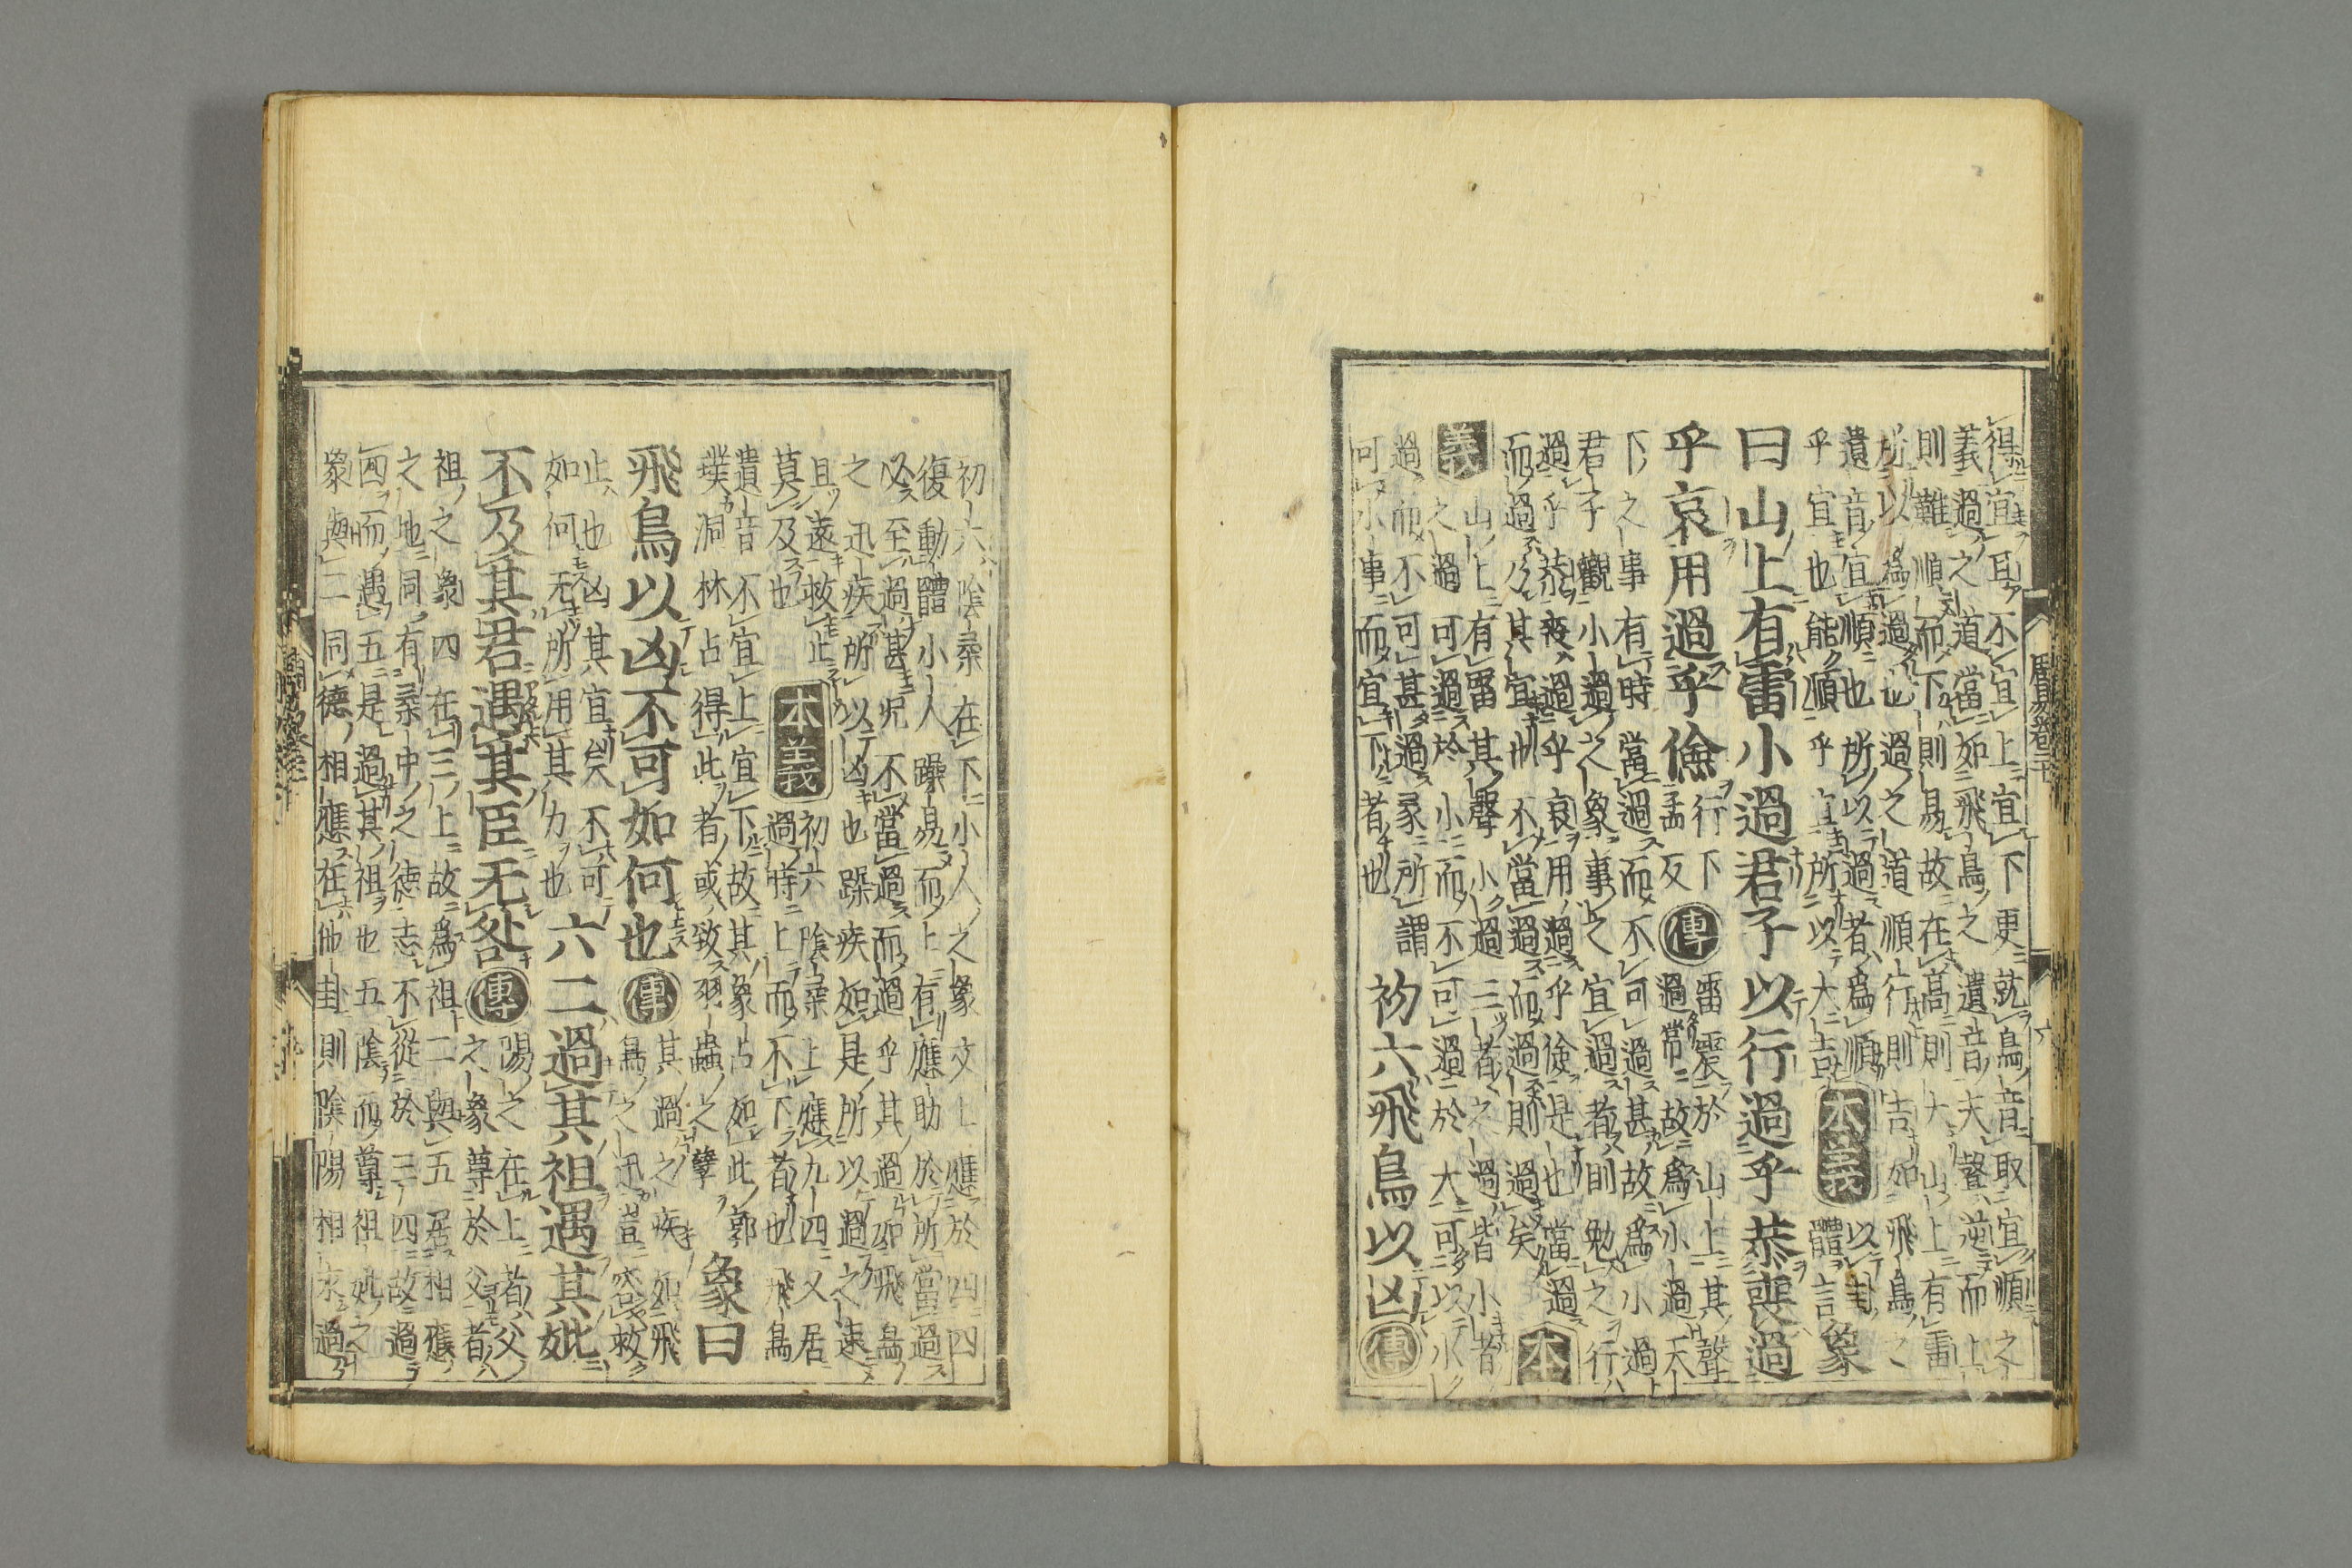 周易卷二十
得宜耳不宜上宜下更就鳥音取宜順之
義過之道當如飛鳥之遺音夫聲逆而上
則難順而下則易故在高則大山上有雷
所以爲過也過之道順行則吉如飛鳥之
遺音宜順也所以過者爲順
乎宜也能順乎宜所以大吉
本義
以卦
體言
象
曰山上有雷小過君子以行過乎恭喪過
乎哀用過乎儉
行下
孟反
傳
雷震於山上其聲
過常故爲小過天
下之事有時當過而不可過甚故爲小過
君子觀小過之象事之宜過者則勉之行
過乎恭喪過乎哀用過乎儉是也當過
而過乃其宜也不當過而過則過矣
本
義
山上有雷其聲小過三者之過皆小者
之過可過於小而不可過於大可以小
過而不可甚過彖所謂
可小事而宜下者也
初六飛鳥以凶
傳
初六陰柔在下小人之象又上應於四四
復動體小人躁易而上有應助於所當過
必至過甚况不當過而過乎其過如飛鳥
之迅疾所以凶也躁疾如是所以過之速
且遠救止
莫及也
本義
初六陰柔上應九四又居
過時上而不下者也飛鳥
遺音不宜上宜下故其象占如此郭
璞洞林占得此者或致羽蟲之孽
象曰
飛鳥以凶不可如何也
傳
其過之疾如飛
鳥之迅豈容救
止也凶其宜矣不可
如何无所用其力也
六二過其祖遇其妣
不及其君遇其臣无咎
傳
陽之在上者父
之象尊於父者
祖之象四在三上故爲祖二與五居相應
之地同有柔中之德志不從於三四故過
四而遇五是過其祖也五陰而尊祖妣之
象與二同德相應在他卦則陰陽相求過